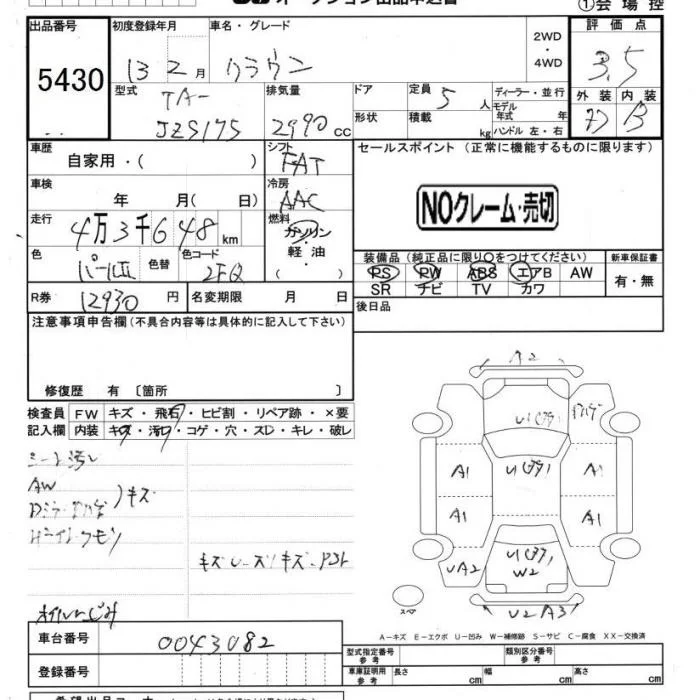 オークション出品申込書
①会場控
出品番号 初度登録年月 車名・グレード 2WD・4WD 評価点
5430 13 2月 クラウン 3.5
型式 TA-JZS175 排気量 2990cc ドア 定員 5人 ディーラー・並行 外装 内装
形状 積載 kg モデル年式 年 ハンドル 左・右 B
車歴 自家用・( ) シフト FAT セールスポイント (正常に機能するものに限ります)
車検 年 月( 日) 冷房 AAC
NOクレーム・売切
走行 4万3千648km 燃料 ガソリン・軽油・( )
色 パールII 色替 色コード 2FQ
装備品 (純正品に限り○をつけてください) 新車保証書
PS PW ABS エアB AW 有・無
SR ナビ TV カワ
R券 12930円 名変期限 月 日 後日品
注意事項申告欄 (不具合内容等は具体的に記入して下さい)
修復歴 有 〔箇所 〕
検査員 FW キズ・飛石・ヒビ割・リペア跡・×要
記入欄 内装 キズ・汚れ・コゲ・穴・スレ・キレ・破レ
シート汚レ
AW
キズ
オイルにじみ
A2
A1 A1
A1 A1
UA2 W2
U2 A3
スペア
A-キズ E-エクボ U-凹み W-補修跡 S-サビ C-腐食 XX-交換済
車台番号 0043082
型式指定番号 参考 類別区分番号 参考
登録番号 車庫証明用 参考 長さ cm 幅 cm 高さ cm
希望出品コーナー